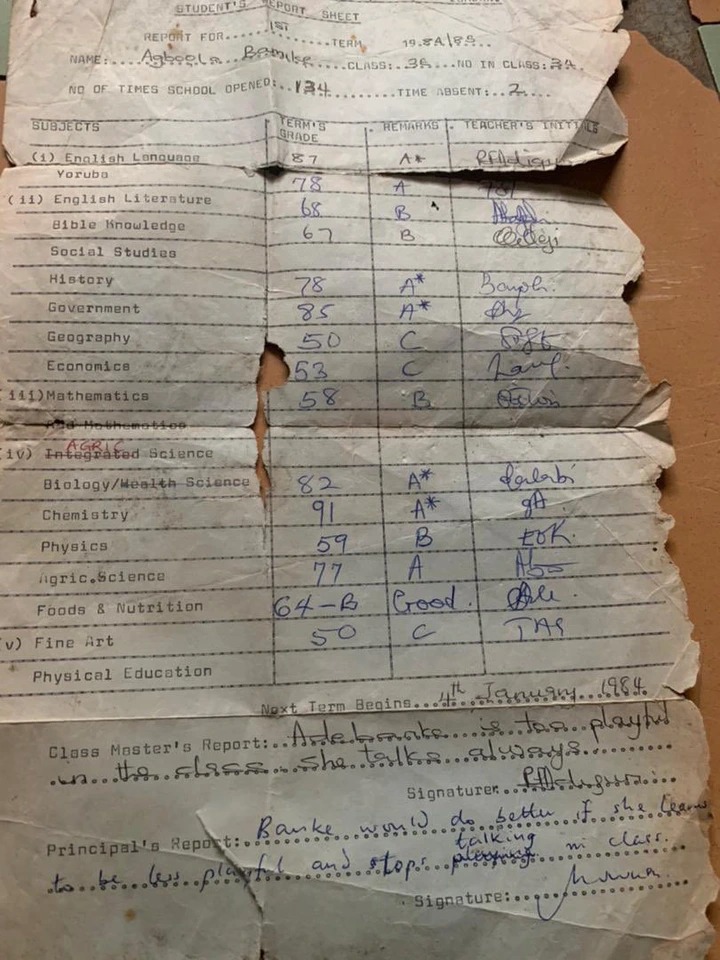 STUDENT'S REPORT SHEET
REPORT FOR....1ST.......TERM 1984/85..
NAME:....Agboola Banke....CLASS:.3C..NO IN CLASS:34.
NO OF TIMES SCHOOL OPENED:.134.......TIME ABSENT:..2....
SUBJECTS TERM'S GRADE REMARKS TEACHER'S INITIALS
(i) English Language 87 A*
Yoruba 78 A
(ii) English Literature 68 B
Bible Knowledge 67 B
Social Studies
History 78 A*
Government 85 A*
Geography 50 C
Economics 53 C
(iii) Mathematics 58 B
Add Mathematics
AGRIC
(iv) Integrated Science
Biology/Health Science 82 A*
Chemistry 91 A* gA
Physics 59 B EOK.
Agric.Science 77 A
Foods & Nutrition 64-B Good.
(v) Fine Art 50 C TAS
Physical Education
Next Term Begins....4th January, 1984
Class Master's Report:..Adebanke is too playful
in the class. she talks always.
Signature:
Principal's Report: Banke would do better if she learns
to be less playful and stops playing talking in class.
Signature: